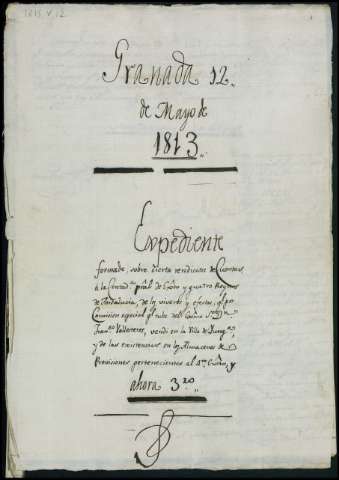 1813 V. 12
Granada 12
de Mayo de
1813
Expediente
formado, sobre cierta rendicion de Cuentas
à la Contad.ª pral de Exto y quatro Reynos
de Andalucia, de los viveres y efectos, q.e por
Comision especial
Fran.co Valdeneros, vendio en la Villa de
y de las existencias en los Almacenes de
Provisiones pertenecientes al 4.º Exto, y
ahora 3.ro